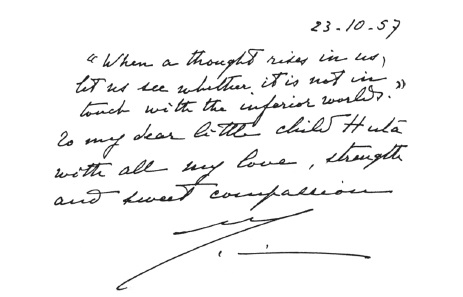 23-10-57
"When a thought rises in us,
let us see whether it is not in
touch with the inferior worlds."
To my dear little child Huta
with all my love, strength
and sweet compassion